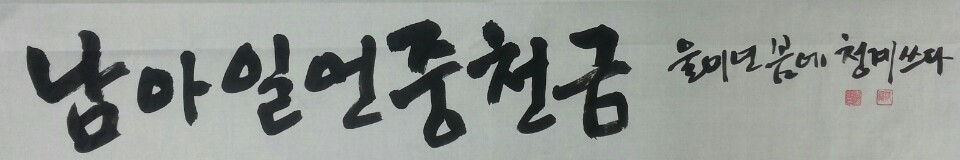 남아일언중천금
을미년 봄에 청계 쓰다